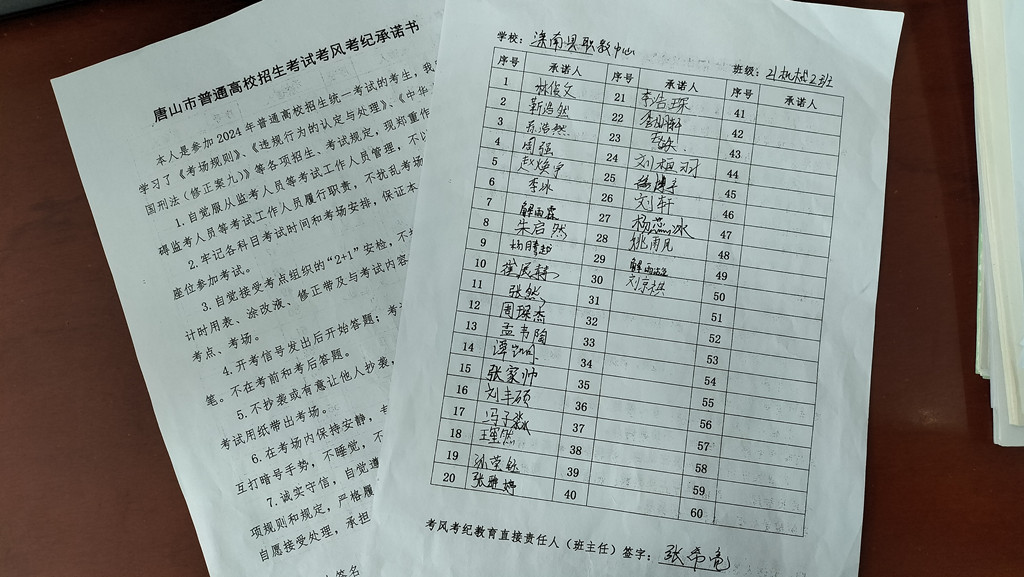 唐山市普通高校招生考试考风考纪承诺书
本人是参加2024年普通高校招生统一考试的考生，我
学习了《考场规则》、《违规行为的认定与处理》、《中华
国刑法（修正案九）》等各项招生、考试规定，现郑重作
1.自觉服从监考人员等考试工作人员管理，不以
碍监考人员等考试工作人员履行职责，不扰乱考场
2.牢记各科目考试时间和考场安排，保证本
座位参加考试。
3.自觉接受考点组织的“2+1”安检，不
计时用表、涂改液、修正带及与考试内容
考点、考场。
4.开考信号发出后开始答题；考
笔。不在考前和考后答题。
5.不抄袭或有意让他人抄袭，
考试用纸带出考场。
6.在考场内保持安静，
互打暗号手势，不睡觉，不
7.诚实守信，自觉遵
项规则和规定，严格履
自愿接受处理，承担
签名
学校：滦南县职教中心
班级：21机械2班
序号 承诺人 序号 承诺人 序号 承诺人
1 林俊文 21 41
2 靳浩然 22 42
3 苏浩然 23 43
4 周强 24 刘相羽 44
5 赵焕宇 25 45
6 李冰 26 刘轩 46
7 解雨霖 27 杨蕊冰 47
8 朱启然 28 姚雨凡 48
9 杨腾超 29 49
10 30 刘宗祺 50
11 张然 31 51
12 周璟杰 32 52
13 孟韦陶 33 53
14 34 54
15 张家帅 35 55
16 刘丰硕 36 56
17 37 57
18 38 58
19 39 59
20 40 60
考风考纪教育直接责任人（班主任）签字：张希宽